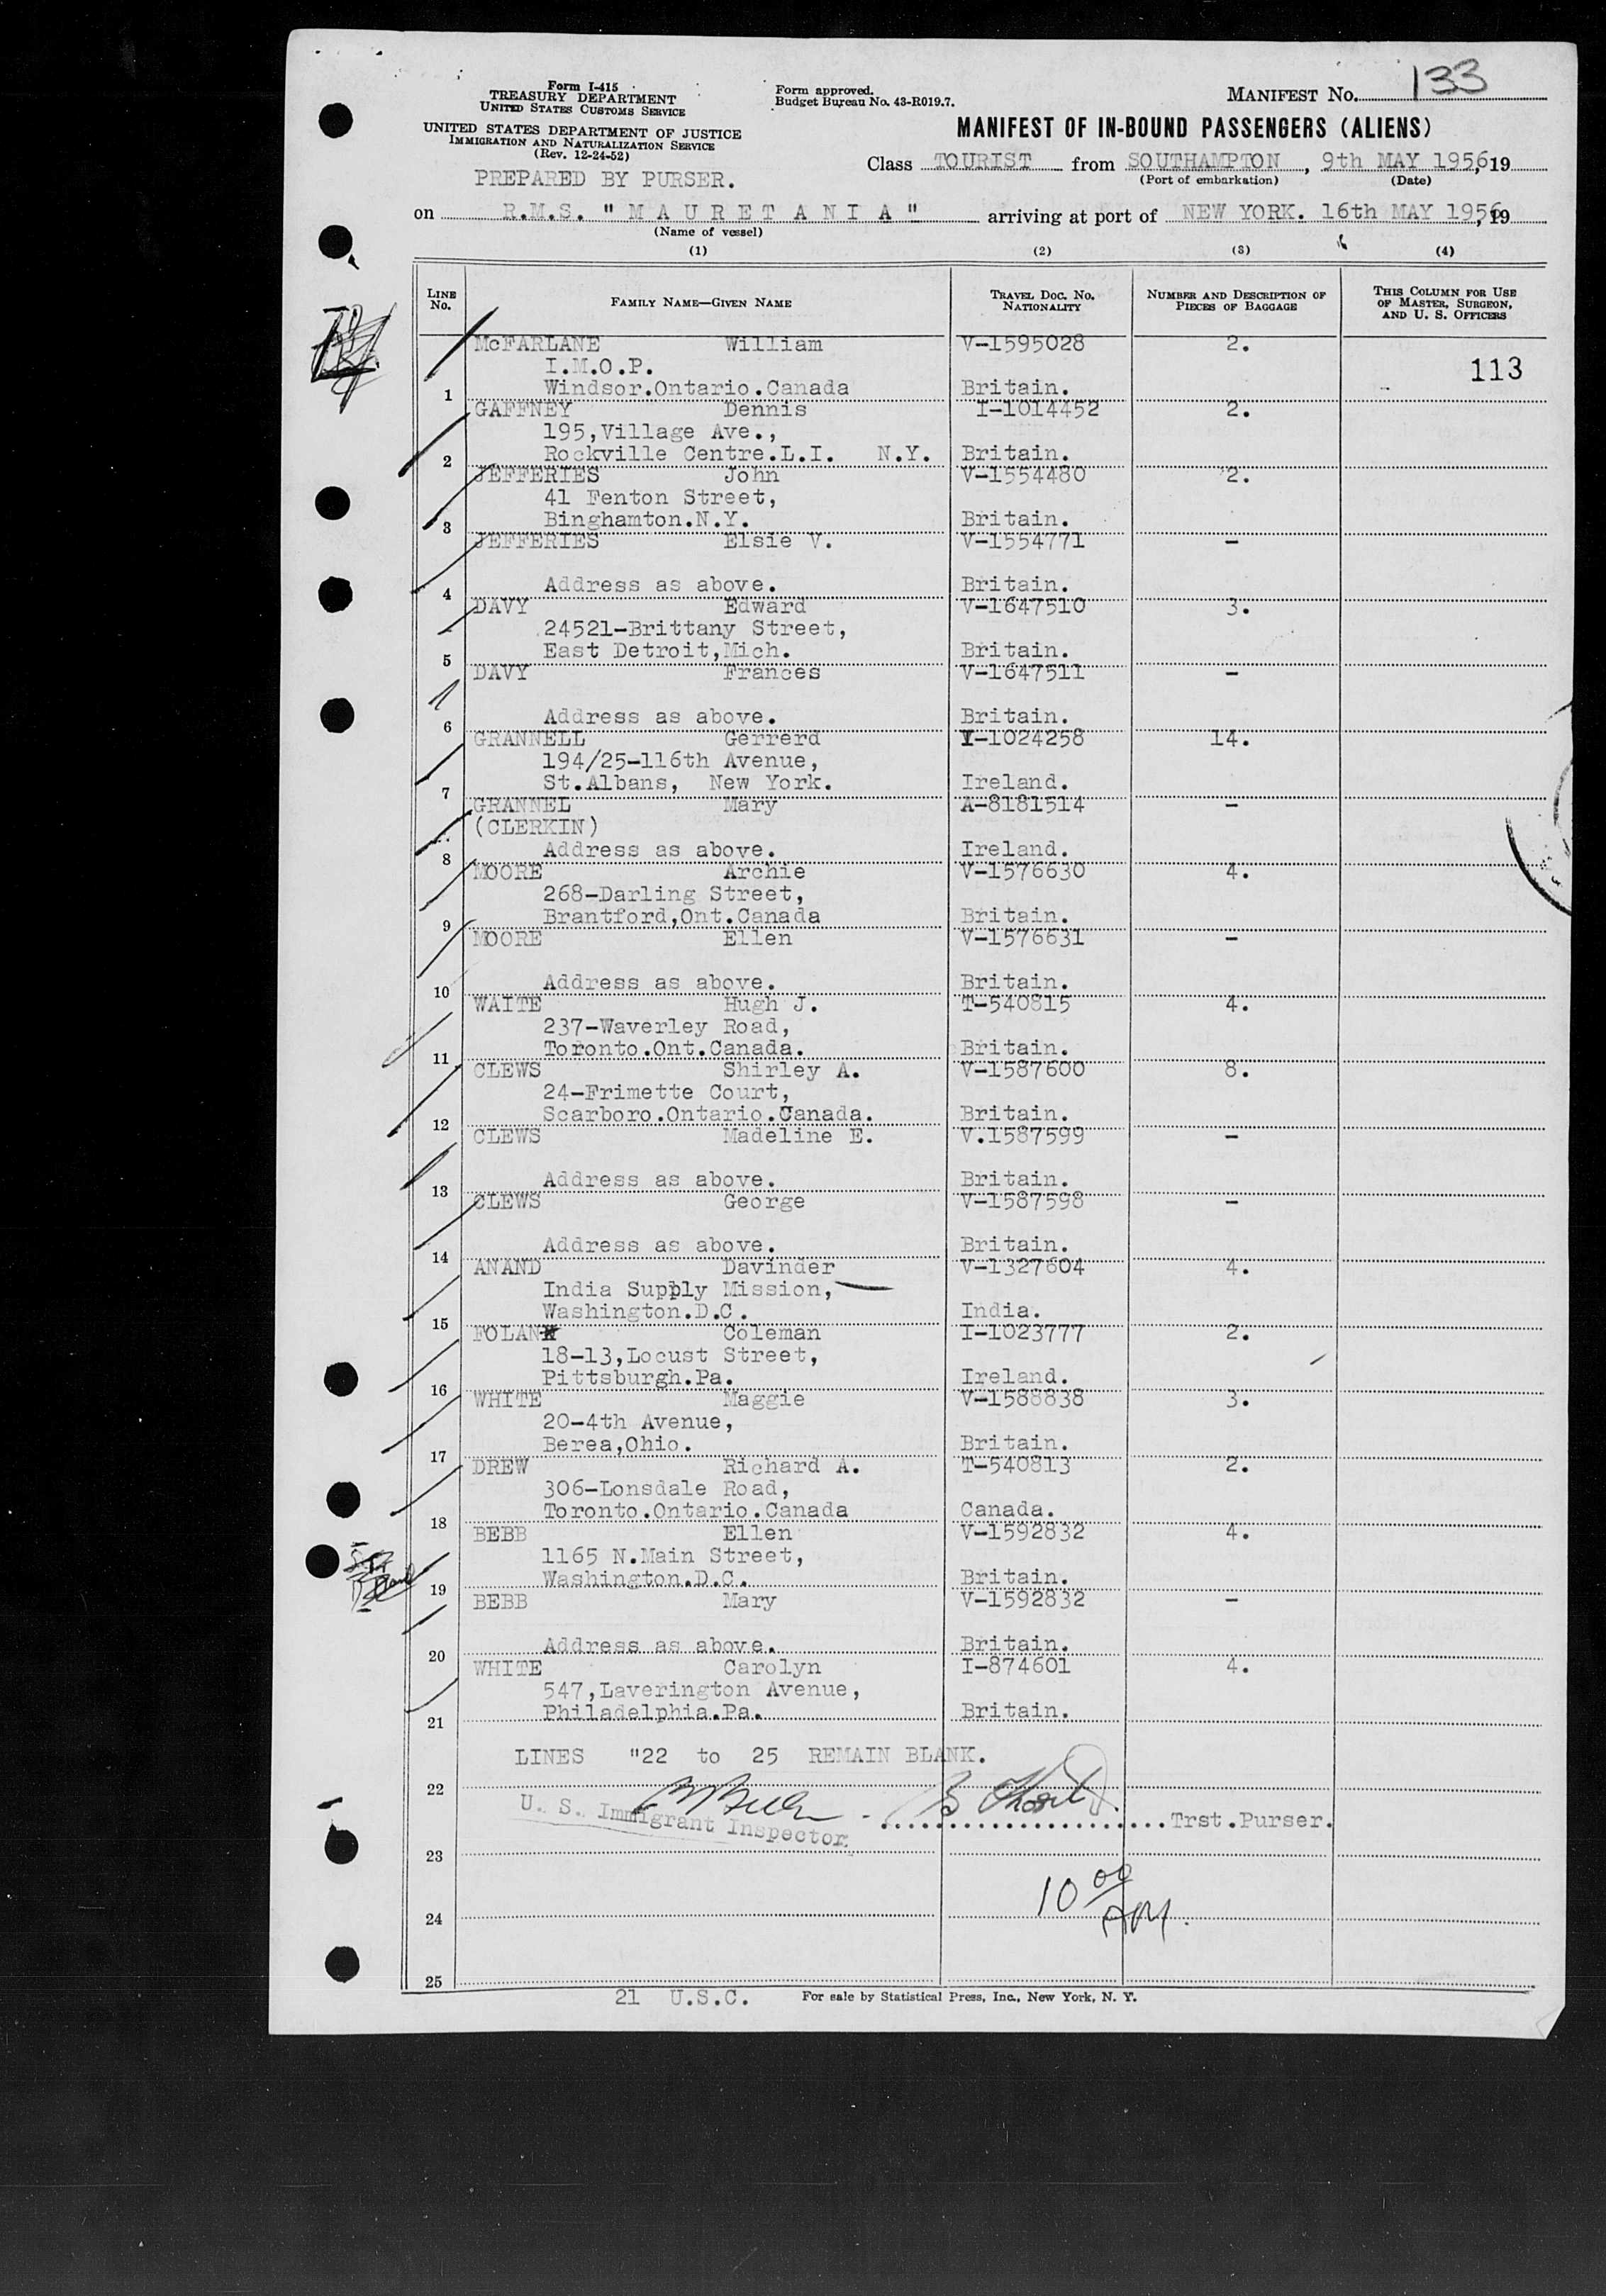 Form I-415
TREASURY DEPARTMENT
UNITED STATES CUSTOMS SERVICE
UNITED STATES DEPARTMENT OF JUSTICE
IMMIGRATION AND NATURALIZATION SERVICE
(Rev. 12-24-52)
PREPARED BY PURSER.
Form approved.
Budget Bureau No. 43-R019.7.
MANIFEST NO. 133
MANIFEST OF IN-BOUND PASSENGERS (ALIENS)
Class TOURIST from SOUTHAMPTON, 9th MAY 1956, 19
(Port of embarkation) (Date)
on R.M.S. "MAURETANIA" arriving at port of NEW YORK. 16th MAY 1956, 19
(Name of vessel)
(1) (2) (3) (4)
LINE NO. FAMILY NAME—GIVEN NAME TRAVEL DOC. NO. NATIONALITY NUMBER AND DESCRIPTION OF PIECES OF BAGGAGE THIS COLUMN FOR USE OF MASTER, SURGEON, AND U. S. OFFICERS
McFARLANE William V-1595028 2.
I.M.O.P. 113
1 Windsor.Ontario.Canada Britain.
GAFFNEY Dennis I-1014452 2.
195,Village Ave.,
2 Rockville Centre.L.I. N.Y. Britain.
JEFFERIES John V-1554480 2.
41 Fenton Street,
3 Binghamton.N.Y. Britain.
JEFFERIES Elsie V. V-1554771 -
4 Address as above. Britain.
DAVY Edward V-1647510 3.
24521-Brittany Street,
5 East Detroit,Mich. Britain.
DAVY Frances V-1647511 -
6 Address as above. Britain.
GRANNELL Gerrerd I-1024258 14.
194/25-116th Avenue,
7 St.Albans, New York. Ireland.
GRANNEL Mary A-8181514 -
(CLERKIN)
8 Address as above. Ireland.
MOORE Archie V-1576630 4.
268-Darling Street,
9 Brantford,Ont.Canada Britain.
MOORE Ellen V-1576631 -
10 Address as above. Britain.
WAITE Hugh J. T-540815 4.
237-Waverley Road,
11 Toronto.Ont.Canada. Britain.
CLEWS Shirley A. V-1587600 8.
24-Frimette Court,
12 Scarboro.Ontario.Canada. Britain.
CLEWS Madeline E. V.1587599 -
13 Address as above. Britain.
CLEWS George V-1587598 -
14 Address as above. Britain.
ANAND Davinder V-1327604 4.
India Supply Mission,
15 Washington.D.C. India.
FOLAN Coleman I-1023777 2.
18-13,Locust Street,
16 Pittsburgh.Pa. Ireland.
WHITE Maggie V-1588838 3.
20-4th Avenue,
17 Berea,Ohio. Britain.
DREW Richard A. T-540813 2.
306-Lonsdale Road,
18 Toronto.Ontario.Canada Canada.
BEBB Ellen V-1592832 4.
1165 N.Main Street,
19 Washington.D.C. Britain.
BEBB Mary V-1592832 -
20 Address as above. Britain.
WHITE Carolyn I-874601 4.
547,Laverington Avenue,
21 Philadelphia.Pa. Britain.
LINES "22 to 25 REMAIN BLANK.
22
U. S. Immigrant Inspector.
Trst.Purser.
23
10 00 AM.
24
25
21 U.S.C. For sale by Statistical Press, Inc., New York, N. Y.